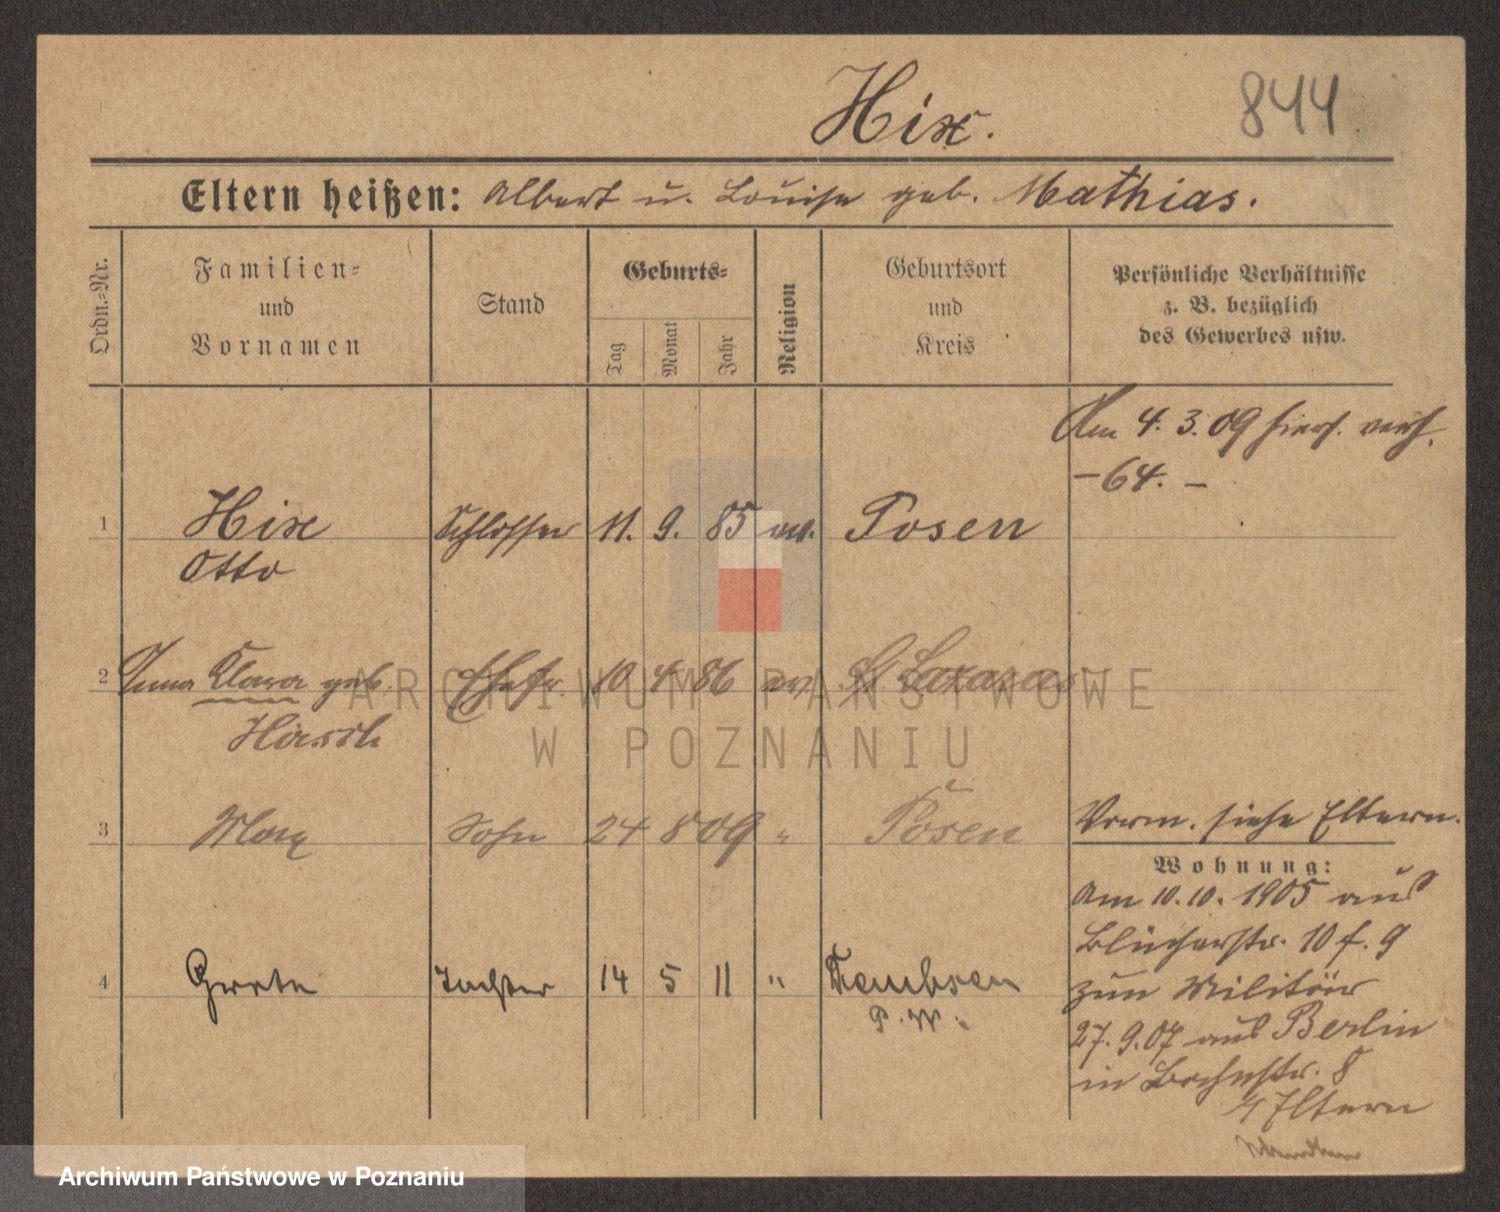 Hix.
844
Eltern heißen: Albert u. Louise geb. Mathias.
Ordn.-Nr.
Familien-
und
Vornamen
Stand
Geburts-
Tag
Monat
Jahr
Religion
Geburtsort
und
Kreis
Persönliche Verhältnisse
z. B. bezüglich
des Gewerbes usw.
Am 4. 3. 09 hiers. verh.
-64.-
1 Hix Schlosser 11. 9. 85 ev. Posen
Otto
2 Anna Klara geb. Ehefr. 10 4 86 ev. St Lazarus
Hirsch
3 Max Sohn 24 8 09 " Posen
Vorm. siehe Eltern.
Wohnung:
Am 10. 10. 1905 aus
Blücherstr. 10 f. 9
4 Grete Tochter 14 5 11 "
zum Militär
P. W.
27. 9. 07 aus Berlin
in 8
Eltern
ARCHIWUM PAŃSTWOWE
W POZNANIU
Archiwum Państwowe w Poznaniu